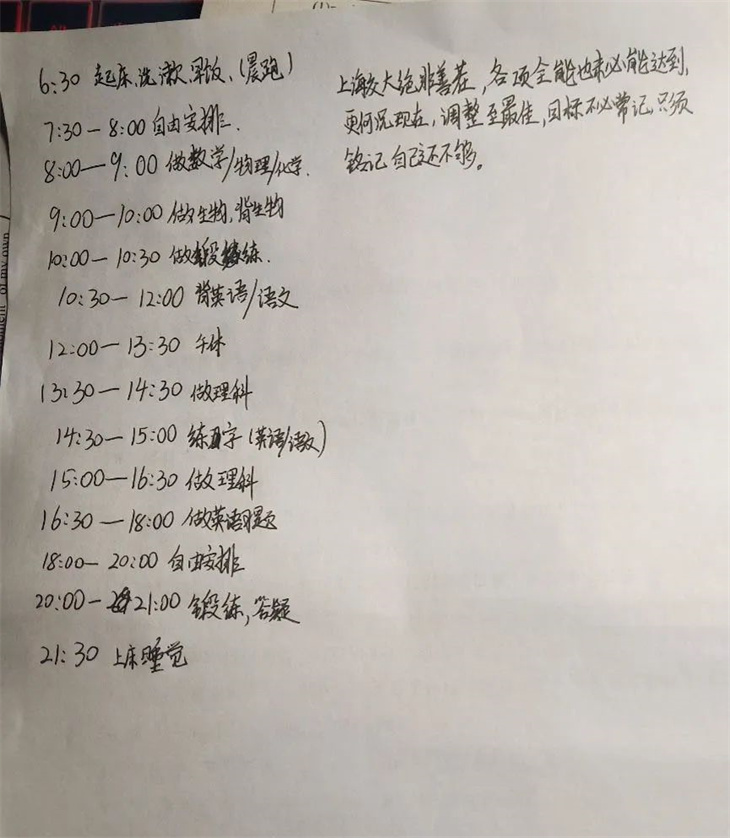 6:30 起床、洗漱、早饭、(晨跑)
7:30—8:00 自由安排.
8:00—9:00 做数学/物理/化学.
9:00—10:00 做生物,背生物
10:00—10:30 做锻炼.
10:30—12:00 背英语/语文
12:00—13:30 午休
13:30—14:30 做理科
14:30—15:00 练字(英语/语文)
15:00—16:30 做理科
16:30—18:00 做英语习题
18:00—20:00 自由安排
20:00—21:00 锻练,答疑
21:30 上床睡觉
上海交大绝非善茬,各项全能也未必能达到,
更何况现在,调整至最佳,目标不必常记,只须
铭记自己还不够。